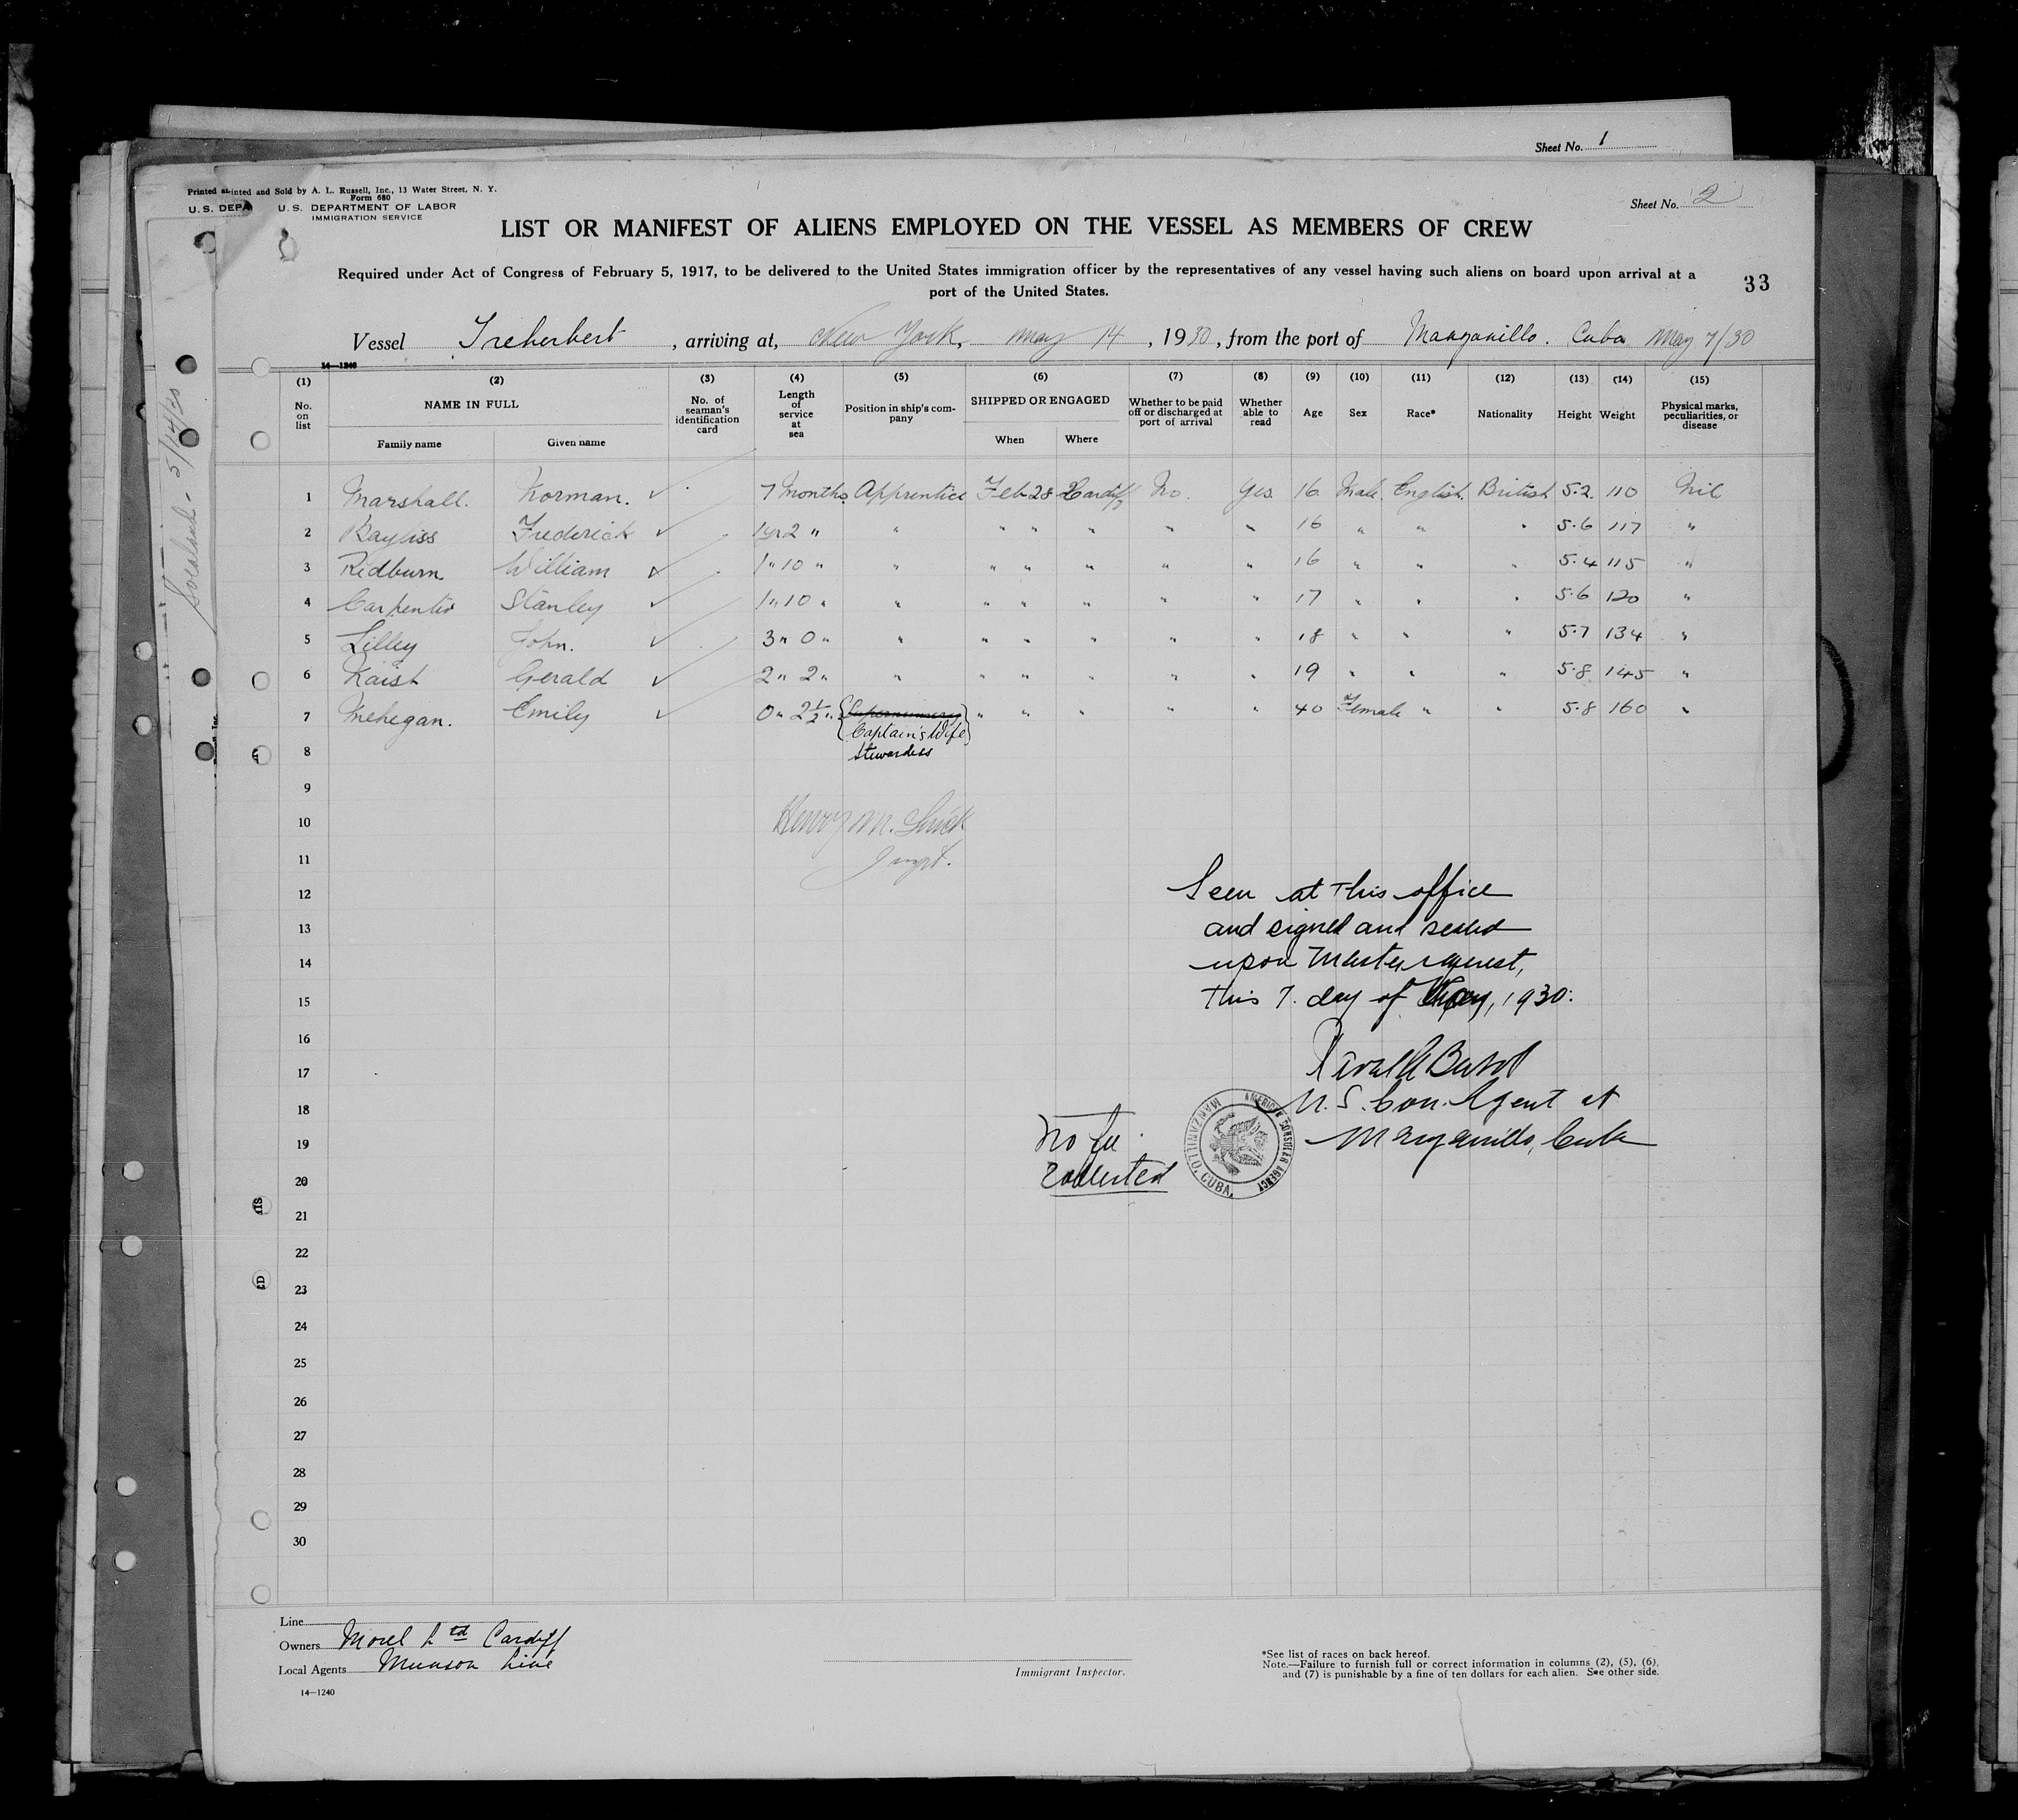 Sheet No. 1
Printed and Sold by A. L. Russell, Inc., 13 Water Street, N. Y.
Form 680
U. S. DEPA U. S. DEPARTMENT OF LABOR
IMMIGRATION SERVICE
Sheet No. 2
LIST OR MANIFEST OF ALIENS EMPLOYED ON THE VESSEL AS MEMBERS OF CREW
Required under Act of Congress of February 5, 1917, to be delivered to the United States immigration officer by the representatives of any vessel having such aliens on board upon arrival at a
port of the United States.
33
Vessel Treherbert, arriving at, New York, May 14, 1930, from the port of Manzanillo. Cuba May 7/30
14—1240
(1) (2) (3) (4) (5) (6) (7) (8) (9) (10) (11) (12) (13) (14) (15)
No. on list NAME IN FULL Family name Given name No. of seaman's identification card Length of service at sea Position in ship's company SHIPPED OR ENGAGED When Where Whether to be paid off or discharged at port of arrival Whether able to read Age Sex Race* Nationality Height Weight Physical marks, peculiarities, or disease
1 Marshall. Norman. 7 Months Apprentice Feb 28 Cardiff No. Yes 16 Male English British 5.2. 110 Nil
2 Bayliss Frederick 1yr 2 " " " " " " " 16 " " " 5.6 117 "
3 Ridburn William 1 " 10 " " " " " " " 16 " " " 5.4 115 "
4 Carpenter Stanley 1 " 10 " " " " " " " 17 " " " 5.6 120 "
5 Lilley John. 3 " 0 " " " " " " " 18 " " " 5.7 134 "
6 Gerald 2 " 2 " " " " " " " 19 " " " 5.8 145 "
7 Mehegan. Emily 0 " 2½ " Supernumery " " " " " 40 Female " " 5.8 160 "
Captain's Wife
8 Stewardess
9
10 Henry M.
11 Inspt.
12 Seen at this office
13 and signed and sealed
14 upon Master request,
15 this 7. day of May, 1930.
16
17
18 U. S. Con. Agent at
19 Manzanillo, Cuba
No fee
Collected
AMERICAN CONSULAR AGENCY
MANZANILLO, CUBA.
20
21
22
23
24
25
26
27
28
29
30
Line
Owners Morel Ltd Cardiff
Local Agents Munson Line
14—1240
Immigrant Inspector.
*See list of races on back hereof.
Note.—Failure to furnish full or correct information in columns (2), (5), (6),
and (7) is punishable by a fine of ten dollars for each alien. See other side.